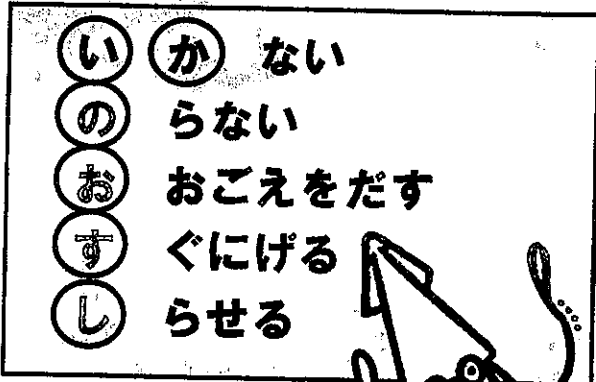 いかない
のらない
おおごえをだす
すぐにげる
しらせる